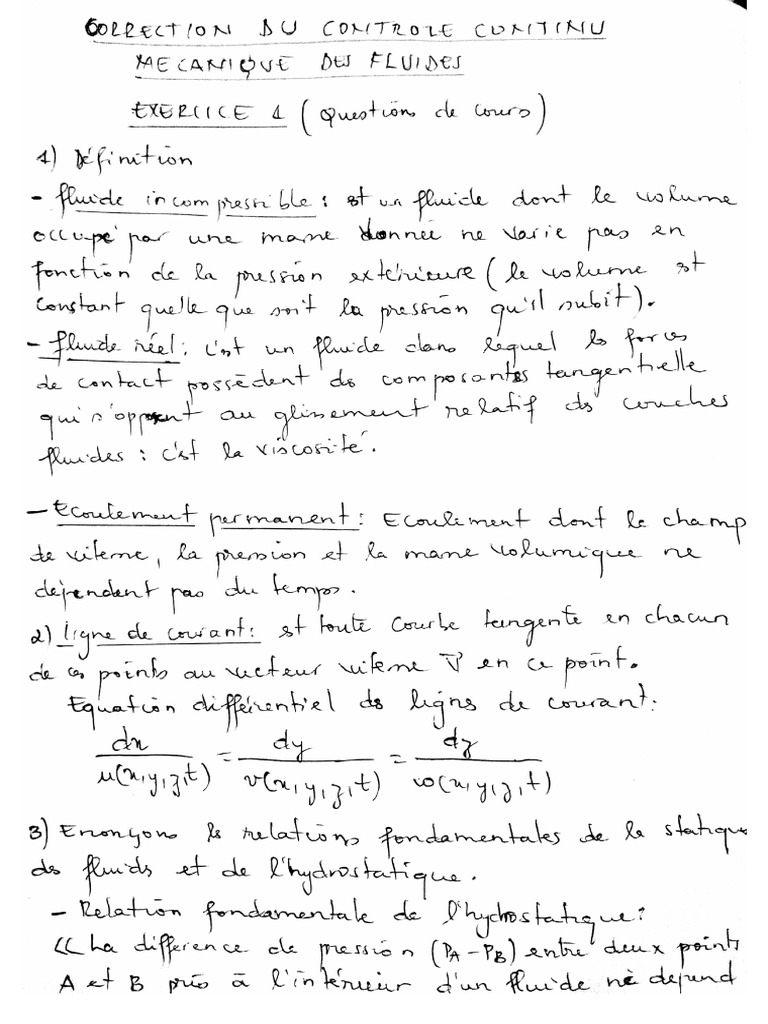 CORRECTION DU CONTROLE CONTINU
MECANIQUE DES FLUIDES
EXERCICE 1 (Question de cours)
1) Définition
- fluide incompressible : est un fluide dont le volume
occupé par une masse donnée ne varie pas en
fonction de la pression extérieure (le volume est
constant quelle que soit la pression qu'il subit).
- fluide réel : c'est un fluide dans lequel les forces
de contact possèdent des composantes tangentielle
qui s'opposent au glissement relatif des couches
fluides : c'est la viscosité.
- Ecoulement permanent : Ecoulement dont le champ
de vitesse, la pression et la masse volumique ne
dépendent pas du temps.
2) Ligne de courant : est toute courbe tangente en chacun
de ces points au vecteur vitesse V en ce point.
Equation différentiel des lignes de courant :
dx/u(x,y,z,t) = dy/v(x,y,z,t) = dz/w(x,y,z,t)
3) Enonçons les relations fondamentales de la statique
des fluides et de l'hydrostatique.
- Relation fondamentale de l'hydrostatique :
<< La différence de pression (PA - PB) entre deux points
A et B pris à l'intérieur d'un fluide ne dépend